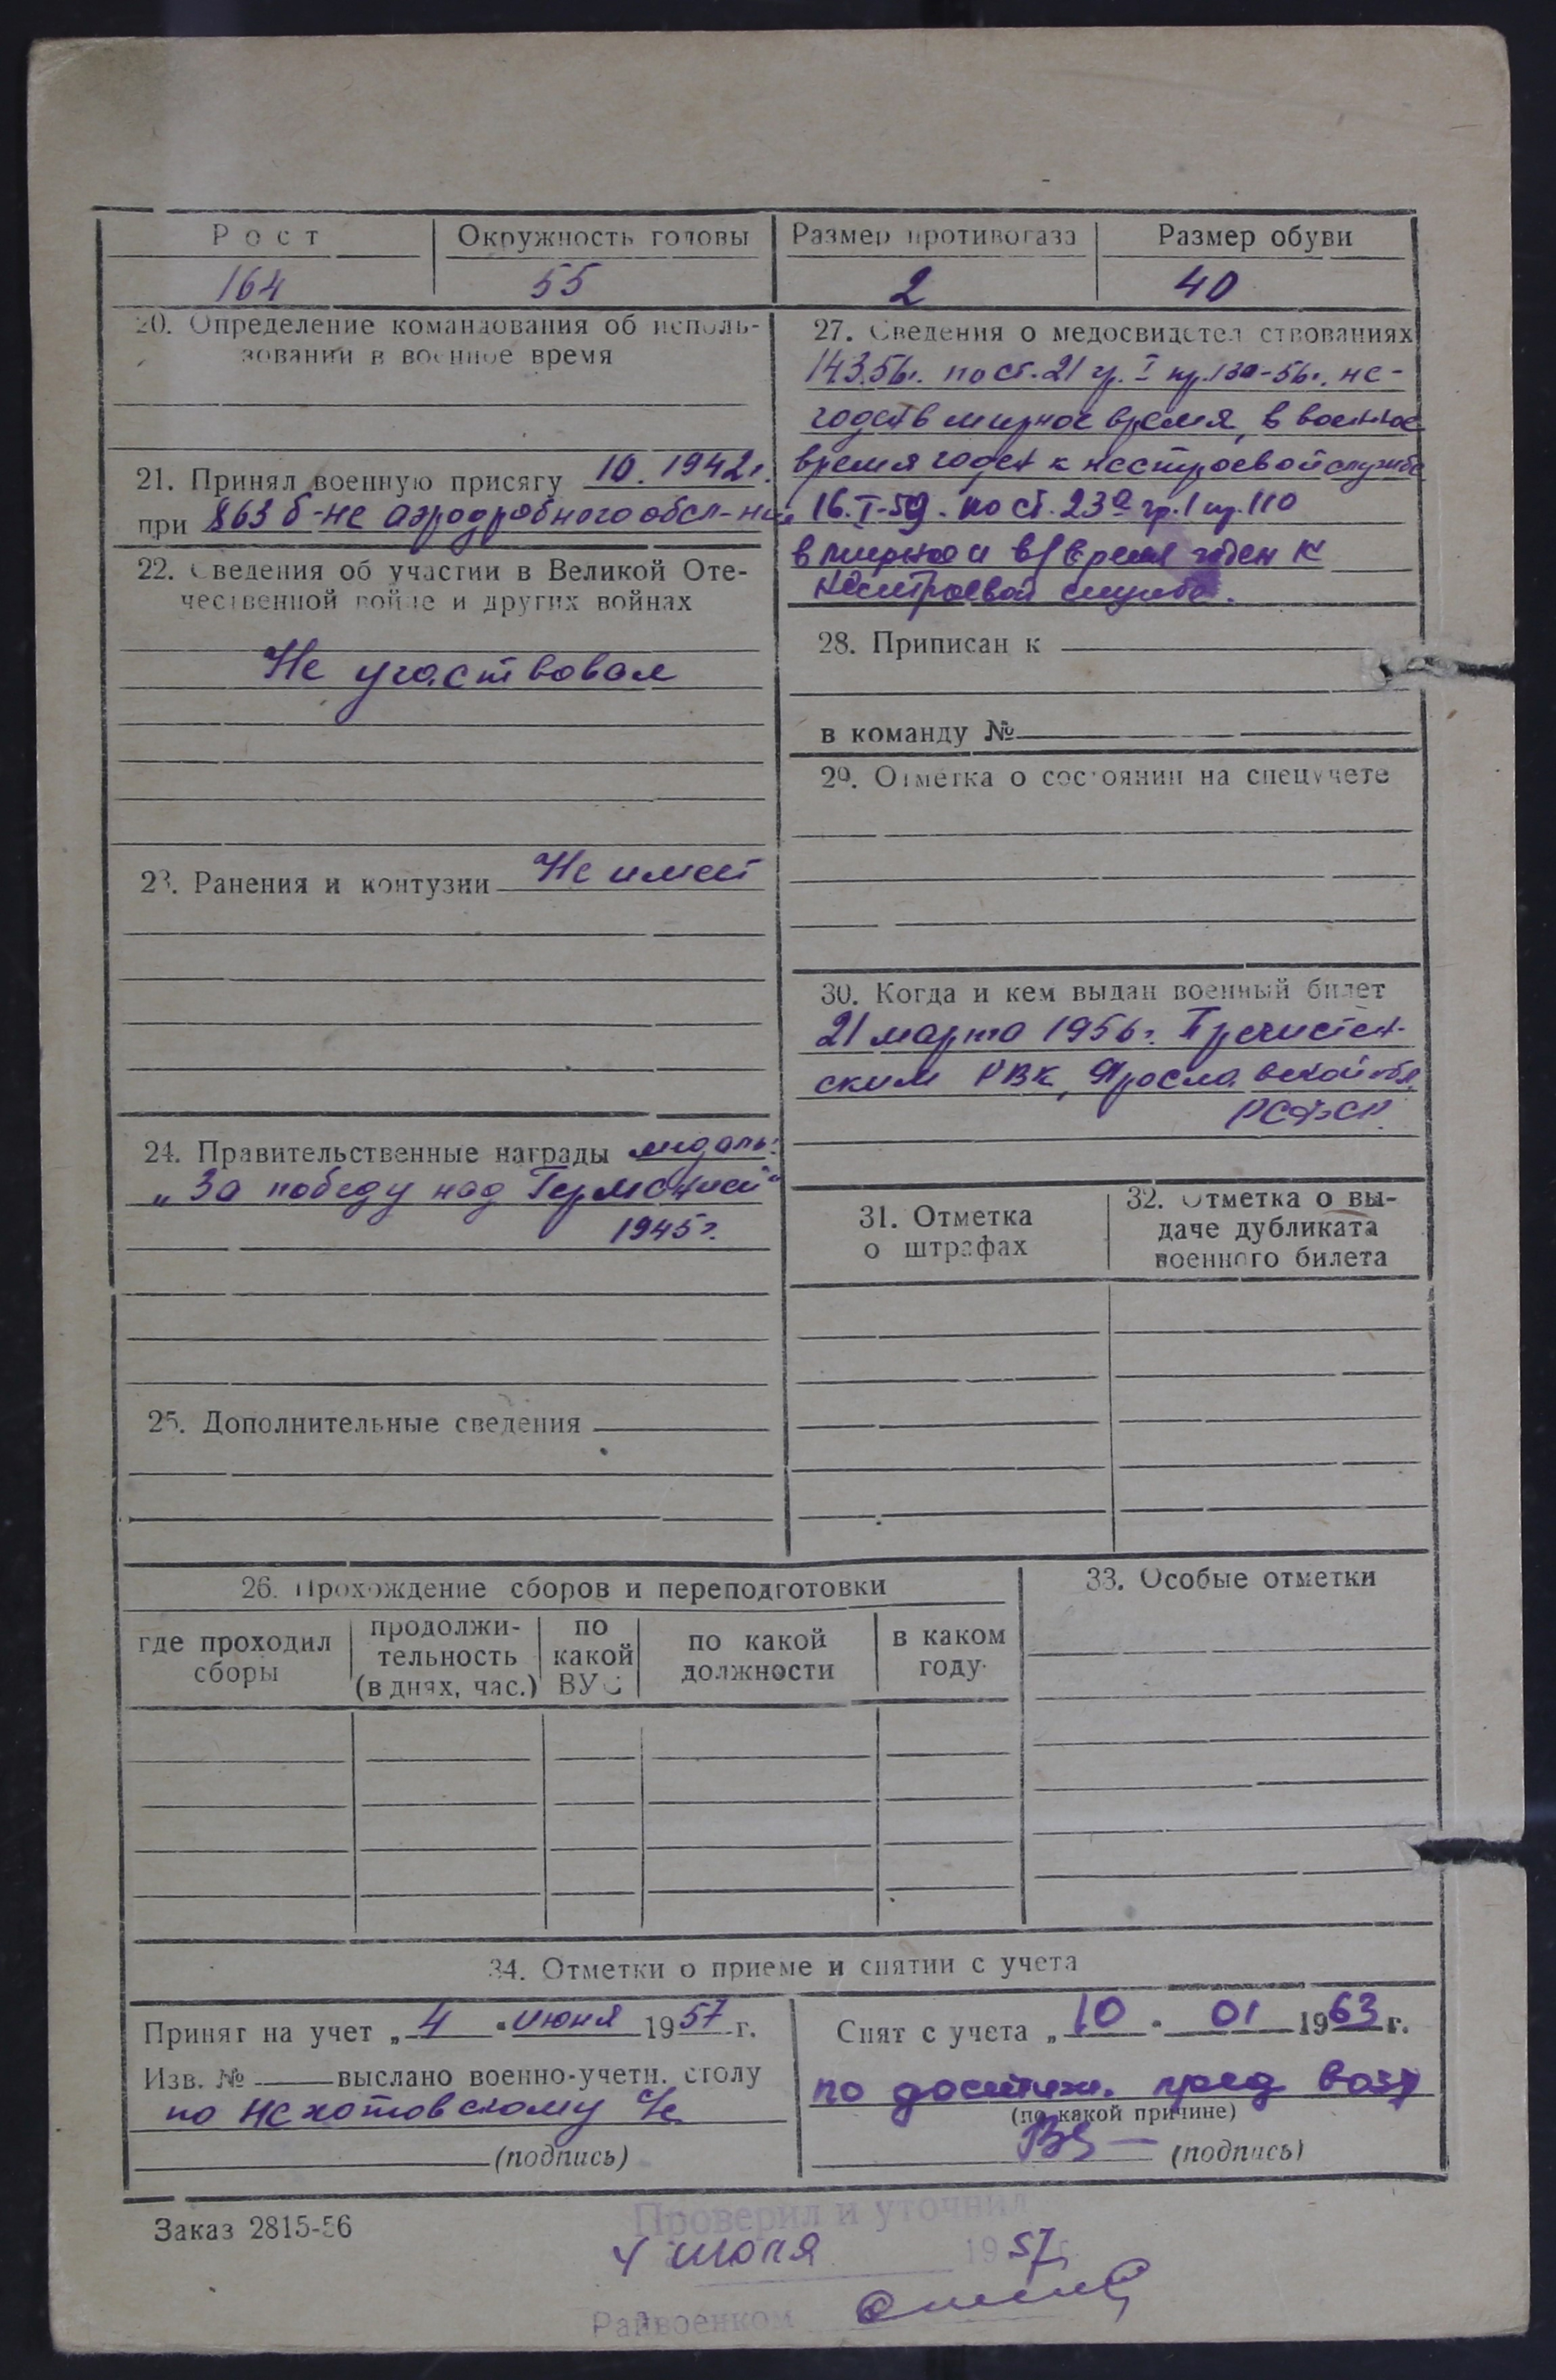 Рост
Окружность головы
Размер противогаза
Размер обуви
164
55
2
40
20. Определение командования об исполь-
зовании в военное время
21. Принял военную присягу 10. 1942г.
при 863 б-не аэродробного обсл-ния
22. Сведения об участии в Великой Оте-
чественной войне и других войнах
Не участвовал
23. Ранения и контузии Не имеет
24. Правительственные награды медаль:
„За победу над Германией“
1945г.
25. Дополнительные сведения
27. Сведения о медосвидетельствованиях
14.3.56г. по ст. 21 гр. I пр. 130-56г. не-
годен в мирное время, в военное
время годен к нестроевой службе
16.I-59. по ст. 23а гр. 1 пр. 110
в мирное и в/время годен к
нестроевой службе.
28. Приписан к
в команду №
29. Отметка о состоянии на спецучете
30. Когда и кем выдан военный билет
21 марта 1956г. Пречистен-
ским РВК, Ярославской обл.
РСФСР.
31. Отметка
о штрафах
32. Отметка о вы-
даче дубликата
военного билета
26. Прохождение сборов и переподготовки
где проходил
сборы
продолжи-
тельность
(в днях, час.)
по
какой
ВУС
по какой
должности
в каком
году
33. Особые отметки
34. Отметки о приеме и снятии с учета
Принят на учет „4“ июня 1957 г.
Изв. № выслано военно-учетн. столу
по
(подпись)
Снят с учета „10“ 01 1963 г.
по достиж. пред возр
(по какой причине)
(подпись)
Заказ 2815-56
Проверил и уточнил
4 июля 1957 г.
Райвоенком